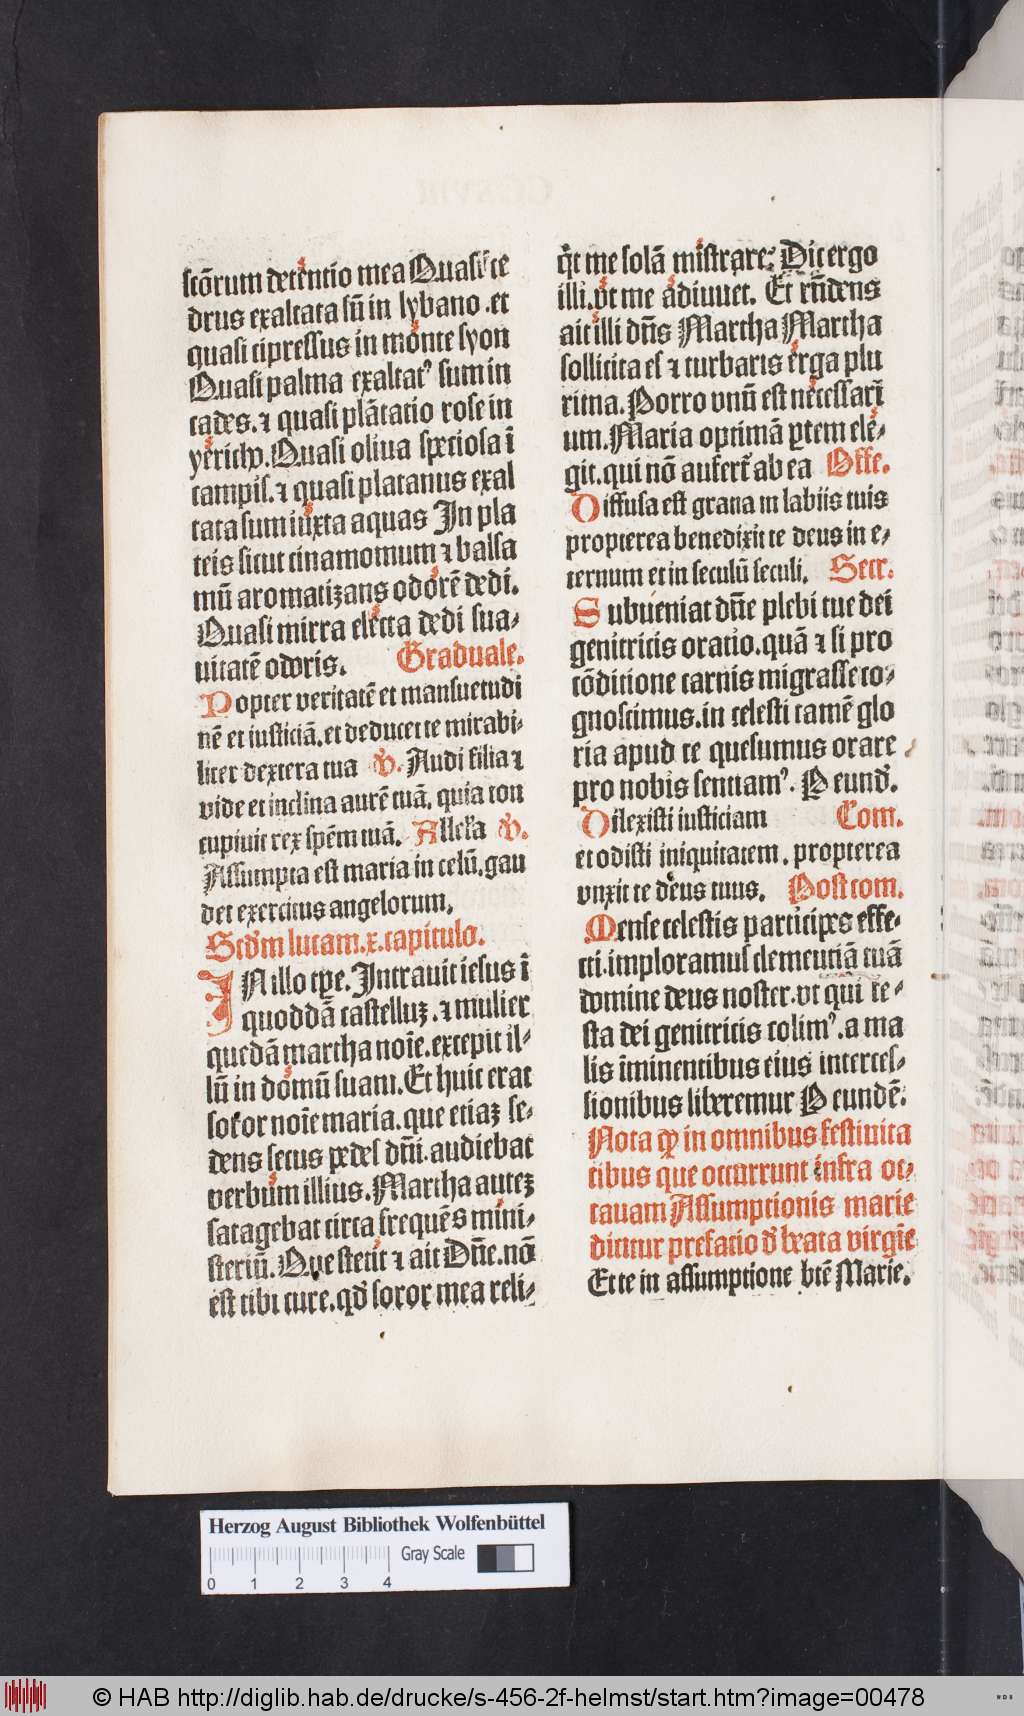 sctõrum detentio mea Quasi ce
drus exaltata sũ in lybano .et
quasi cipressus in monte syon
Quasi palma exaltatꝰ sum in
cades. ⁊ quasi plãtatio rose in
yericho. Quasi oliua speciosa ĩ
campis. ⁊ quasi platanus exal
tata sum iuxta aquas In pla
teis sicut cinamomum ⁊ balsa
mũ aromatizans odorẽ dedi.
Quasi mirra electa dedi sua⸗
uitatẽ odoris. Graduale.
Popter veritatẽ et mansuetudi
nẽ et iusticiã. et deducet te mirabi⸗
liter dextera tua ℣. Audi filia ⁊
vide et inclina aurẽ tuã. quia con
cupiuit rex spẽm tuã. Alleła ℣.
Assumpta est maria in celũ. gau
det exercitus angelorum.
Scdm lucam. x. capitulo.
IN illo tpe. Intrauit iesus ĩ
quoddã castelluz. ⁊ mulier
quedã martha noĩe. excepit il⸗
lũ in domũ suam. Et huic erat
soror noĩe maria. que etiaz se⸗
dens secus pedes dñi. audiebat
verbum illius. Martha autez
satagebat circa frequẽs mini⸗
steriũ. Que stetit ⁊ ait Dñe. nõ
est tibi cure. qd soror mea reli⸗
qt me solã mĩstrare? Dic ergo
illi. vt me adiuuet. Et rñdens
ait illi dñs Martha Martha
sollicita es ⁊ turbaris erga plu
rima. Porro vnũ est necessarĩ
um. Maria optimã ptem ele⸗
git. qui nõ aufert ab ea Offe.
Diffusa est grana in labiis tuis
propterea benedixit te deus in e⸗
ternum et in seculũ seculi. Secr.
Subueniat dñe plebi tue dei
genitricis oratio. quã ⁊ si pro
cõditione carnis migrasse co⸗
gnoscimus. in celesti tamẽ glo
ria apud te quesumus orare
pro nobis sentiamꝰ. P eund.
Dilexisti iusticiam Com.
et odisti iniquitatem. propterea
vnxit te deus tuus. Postcom.
Mense celestis participes effe⸗
cti. imploramus clementiã tuã
domine deus noster. vt qui fe⸗
sta dei genitricis colimꝰ. a ma
lis ĩminentibus eius interces⸗
sionibus liberemur P eundẽ.
Nota ꝙ in omnibus festiuita
tibus que occurrunt infra oc⸗
tauam Assumptionis marie
dicitur prefacio d beata virgĩe
Et te in assumptione btẽ Marie.
Herzog August Bibliothek Wolfenbüttel
0 1 2 3 4 Gray Scale
© HAB http://diglib.hab.de/drucke/s-456-2f-helmst/start.htm?image=00478